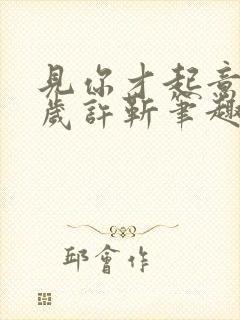 見你才起意
歲許斬筆趣
邱會作